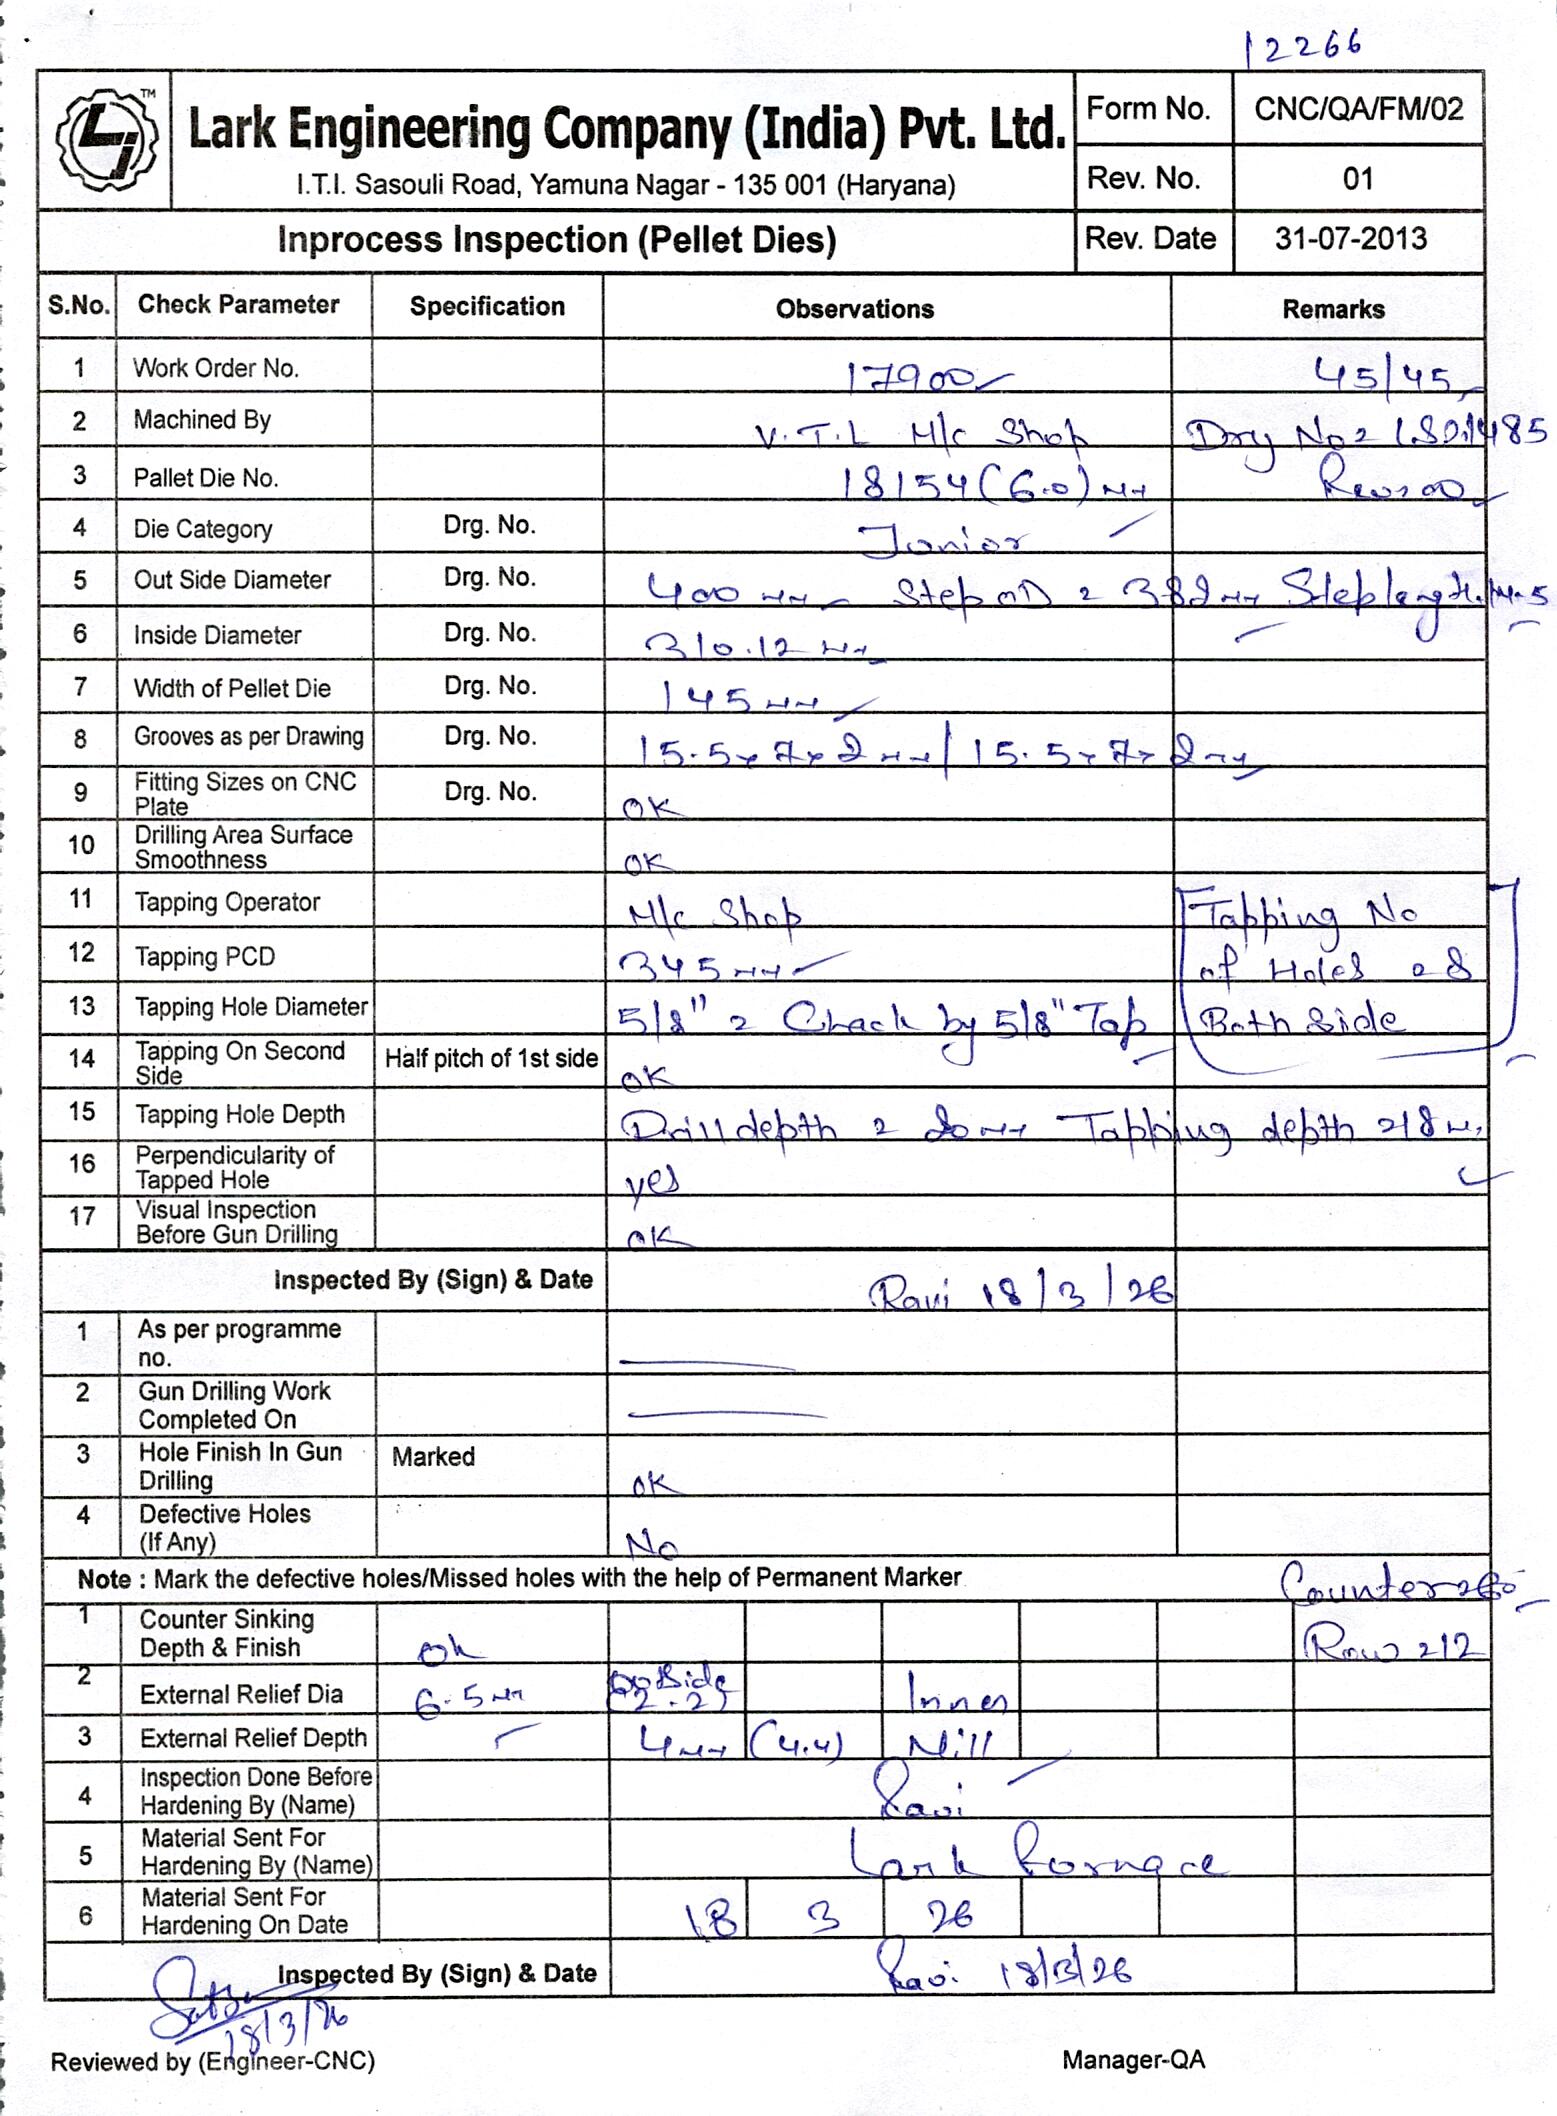 12266
TM
Lark Engineering Company (India) Pvt. Ltd.
I.T.I. Sasouli Road, Yamuna Nagar - 135 001 (Haryana)
Form No. CNC/QA/FM/02
Rev. No. 01
Inprocess Inspection (Pellet Dies) Rev. Date 31-07-2013
S.No. Check Parameter Specification Observations Remarks
1 Work Order No. 17900 45/45
2 Machined By V.T.L M/c Shop Drg No = LSD1485
3 Pallet Die No. 18154 (6.0) mm Rev:00
4 Die Category Drg. No. Junior
5 Out Side Diameter Drg. No. 400 mm Step OD = 382mm Step length. 14.5
6 Inside Diameter Drg. No. 310.12 mm
7 Width of Pellet Die Drg. No. 145mm
8 Grooves as per Drawing Drg. No. 15.5x7x2mm/15.5x7x2mm
9 Fitting Sizes on CNC Plate Drg. No. OK
10 Drilling Area Surface Smoothness OK
11 Tapping Operator M/c Shop Tapping No
12 Tapping PCD 345mm of Holes = 8
13 Tapping Hole Diameter 5/8" = Check by 5/8" Tap Both Side
14 Tapping On Second Side Half pitch of 1st side OK
15 Tapping Hole Depth Drill depth = 20mm Tapping depth =18 m.
16 Perpendicularity of Tapped Hole yes
17 Visual Inspection Before Gun Drilling OK
Inspected By (Sign) & Date Ravi 18/3/26
1 As per programme no.
2 Gun Drilling Work Completed On
3 Hole Finish In Gun Drilling Marked OK
4 Defective Holes (If Any) No
Note : Mark the defective holes/Missed holes with the help of Permanent Marker
1 Counter Sinking Depth & Finish Ok Row =12
2 External Relief Dia 6.5mm Inner
3 External Relief Depth 4mm (4.4) Nill
4 Inspection Done Before Hardening By (Name) Ravi
5 Material Sent For Hardening By (Name) Lark Fornace
6 Material Sent For Hardening On Date 18 3 26
Inspected By (Sign) & Date Ravi 18/3/26
18/3/26
Reviewed by (Engineer-CNC) Manager-QA